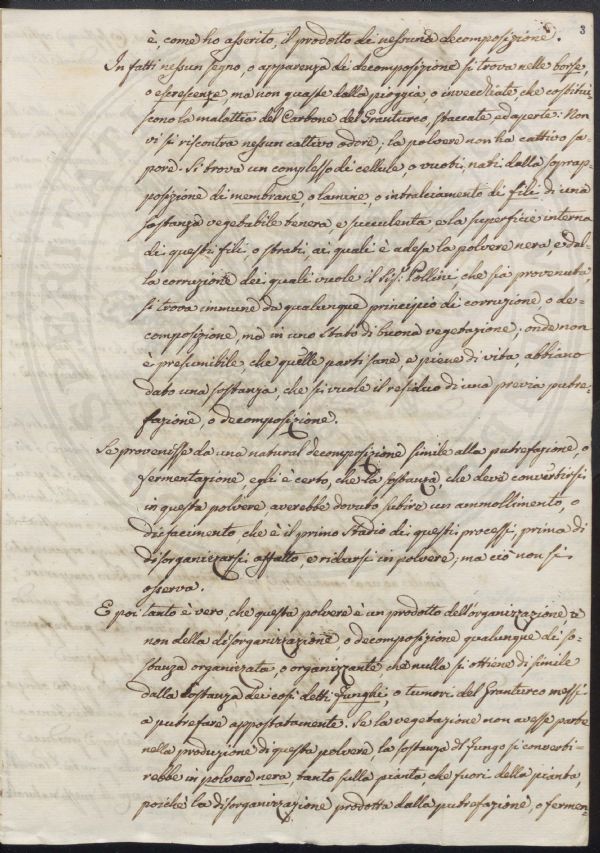 3
è, come ho asserito, il prodotto di nessuna decomposizione.
In fatti nessun segno, o apparenza di decomposizione si trova nelle borse,
o escrescenze ma non guaste dalla pioggia, o invecchiate che costitui-
scono la malattia del Carbone del Granturco, staccate, ed aperte: Non
vi si riscontra nessun cattivo odore; la polvere non ha cattivo sa-
pore. Si trova un complesso di cellule, o vuoti, nati dalla soprap-
posizione di membrane, o lamine, o intralciamento di fili di una
sostanza vegetabile tenera, e succulenta, e la superficie interna
di questi fili, o strati, ai quali è adesa la polvere nera, e dal-
la corruzione dei quali vuole il Sig. Pollini, che sia provenuta,
si trova immune da qualunque principio di corruzione o de-
composizione, ma in uno stato di buona vegetazione, onde non
è presumibile, che quelle parti sane, e piene di vita, abbiano
dato una sostanza, che si vuole il residuo di una previa putre-
fazione, o decomposizione.
Se provenisse da una natural decomposizione simile alla putrefazione, o
fermentazione, egli è certo, che la sostanza, che deve convertirsi
in questa polvere averebbe dovuto subire un ammollimento, o
disfacimento, che è il primo stadio di questi processi, prima di
disorganizzarsi affatto, e ridursi in polvere; ma ciò non si
osserva.
E poi tanto è vero, che questa polvere è un prodotto dell'organizzazione e
non della disorganizzazione o decomposizione qualunque di so-
stanza organizzata, o organizzante che nulla si ottiene di simile
dalla sostanza dei così detti funghi, o tumori del Granturco messi
a putrefare appostatamente. Se la vegetazione non avesse parte
nella produzione di questa polvere, la sostanza di fungo si converti-
rebbe in polvere nera, tanto sulla pianta che fuori della pianta,
poichè la disorganizzazione prodotta dalla putrefazione, o fermen-